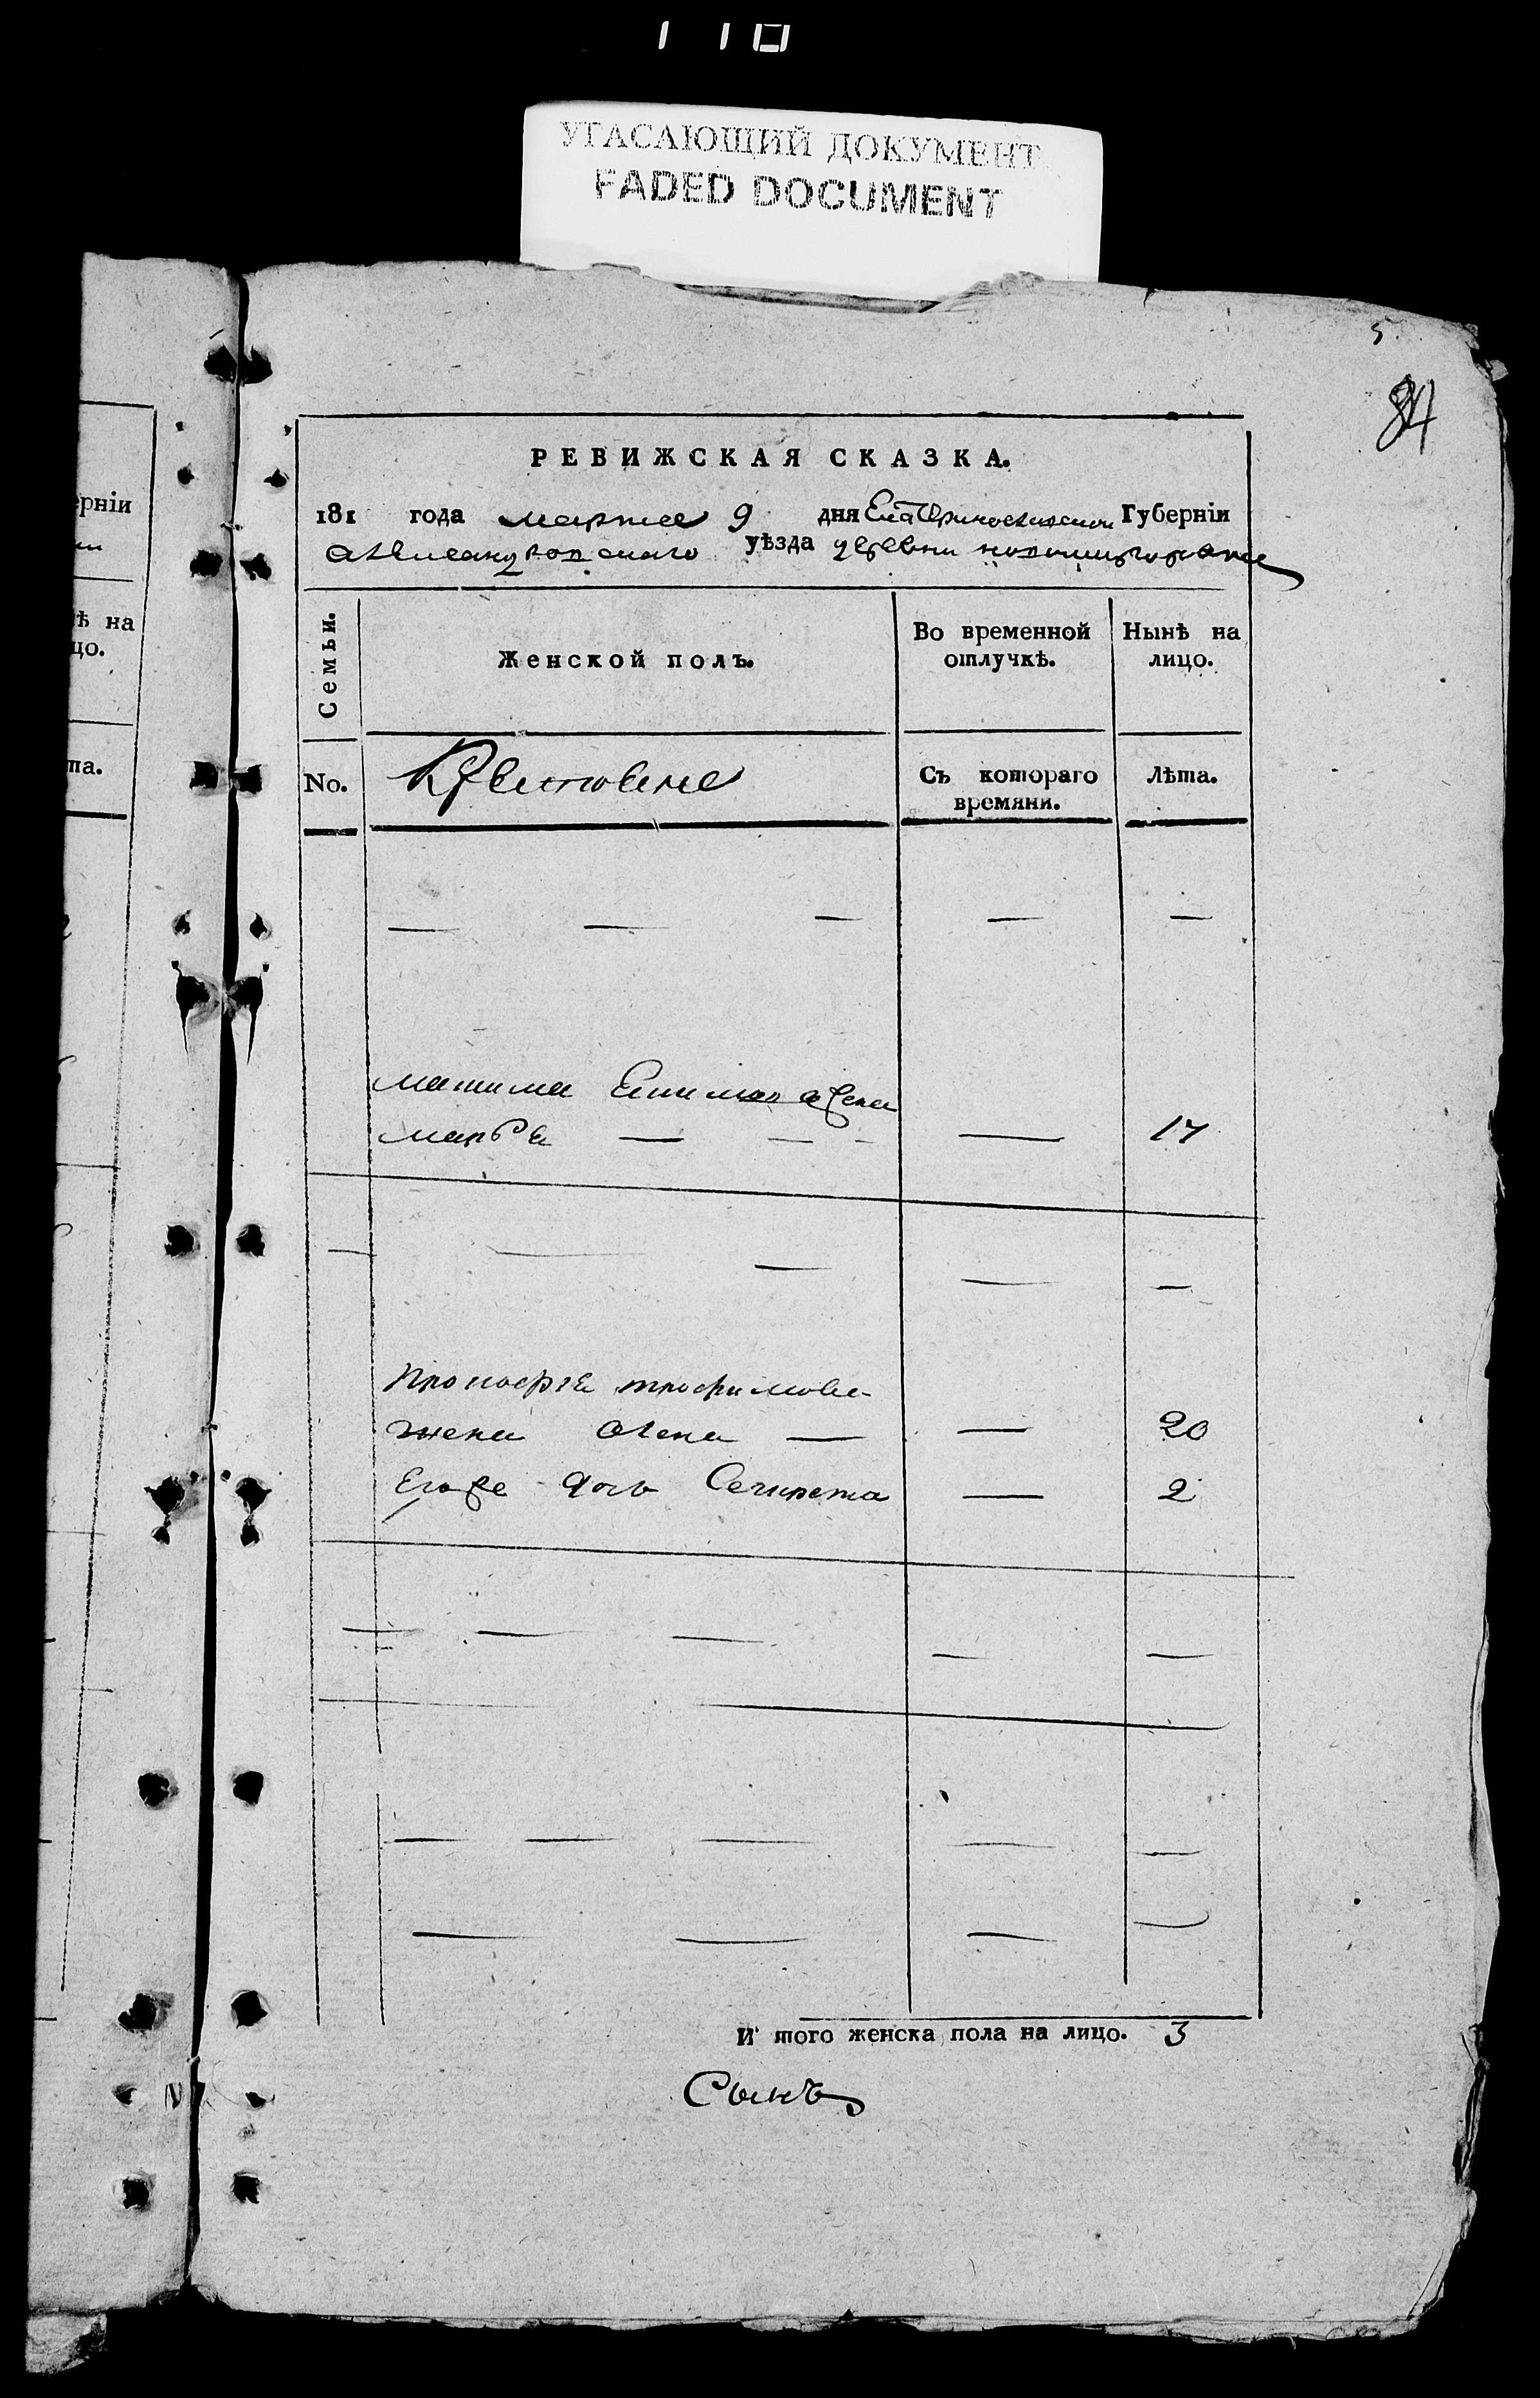 УГАСАЮЩИЙ ДОКУМЕНТ
FADED DOCUMENT
5
84
РЕВИЖСКАЯ СКАЗКА.
181 года марта 9 дня Екатеринославской Губерніи
александровскаго уѣзда деревни
Семьи.
Женской полъ.
Во временной отлучкѣ.
Нынѣ на лицо.
No.
Съ котораго времяни.
Лѣта.
марья 17
трофимова
жена 20
Его же дочь 2
И того женска пола на лицо. 3
Сынъ
ерніи
ѣ на
цо.
та.